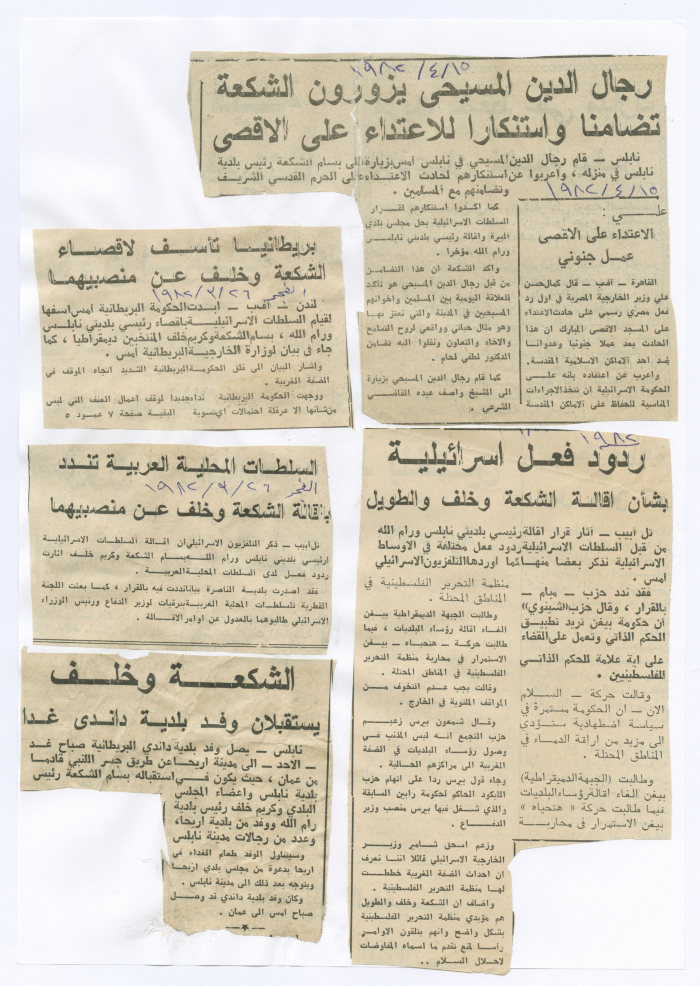 ١٩٨٢/٤/١٥
رجال الدين المسيحى يزورون الشكعة
تضامنا واستنكارا للاعتداء على الاقصى
نابلس — قام رجال الدين المسيحي في نابلس امس بزيارة الى بسام الشكعة رئيس بلدية
نابلس في منزله ، واعربوا عن استنكارهم لحادث الاعتداء على الحرم القدسي الشريف
وتضامنهم مع المسلمين .
كما اكدوا استنكارهم لقرار
السلطات الاسرائيلية بحل مجلس بلدي
البيرة واقالة رئيسي بلديتي نابلس
ورام الله مؤخرا .
واكد الشكعة ان هذا التضامن
من قبل رجال الدين المسيحي هو تأكيد
للعلاقة اليومية بين المسلمين واخوانهم
المسيحيين في المدينة والتي نعتز بها
وهو مثال حياتي وواقعي لروح التسامح
والاخاء والتعاون ونقلوا اليه تضامن
الدكتور لطفي لحام .
كما قام رجال الدين المسيحي بزيارة
الى الشيخ واصف عبده القاضي
الشرعي .
١٩٨٢/٤/١٥
علي :
الاعتداء على الاقصى
عمل جنوني
القاهرة — أ.ف.ب — قال كمال حسن
علي وزير الخارجية المصرية في اول رد
فعل مصري رسمي على حادث الاعتداء
على المسجد الاقصى المبارك ان هذا
الحادث يعد عملا جنونيا وعدوانا
ضد احد الاماكن الاسلامية المقدسة.
واعرب عن اعتقاده بانه على
الحكومة الاسرائيلية ان تتخذ الاجراءات
المناسبة للحفاظ على الاماكن المقدسة
بريطانيا تأسف لاقصاء
الشكعة وخلف عن منصبيهما
الفجر ١٩٨٢/٣/٢٦
لندن — أ.ف.ب — ابدت الحكومة البريطانية امس اسفها
لقيام السلطات الاسرائيلية باقصاء رئيسي بلديتي نابلس
ورام الله ، بسام الشكعة وكريم خلف المنتخبين ديمقراطيا ، كما
جاء في بيان لوزارة الخارجية البريطانية امس .
واشار البيان الى قلق الحكومة البريطانية الشديد اتجاه الموقف في
الضفة الغربية .
ووجهت الحكومة البريطانية نداء جديدا لوقف اعمال العنف التي ليس
من شأنها الا عرقلة احتمالات اي تسوية البقية صفحة ٧ عمود ٥
السلطات المحلية العربية تندد
الفجر ١٩٨٢/٣/٢٦
باقالة الشكعة وخلف عن منصبيهما
تل أبيب — ذكر التلفزيون الاسرائيلي ان اقالة السلطات الاسرائيلية
لرئيسي بلديتي نابلس ورام الله بسام الشكعة وكريم خلف اثارت
ردود فعل لدى السلطات المحلية العربية .
فقد اصدرت بلدية الناصرة بيانا نددت فيه بالقرار ، كما بعثت اللجنة
القطرية للسلطات المحلية العربية ببرقيات لوزير الدفاع ورئيس الوزراء
الاسرائيلي طالبوهما بالعدول عن اوامر الاقالة .
الشكعة وخلف
يستقبلان وفد بلدية داندى غدا
نابلس — يصل وفد بلدية داندي البريطانية صباح غد
— الاحد — الى مدينة اريحا عن طريق جسر اللنبي قادما
من عمان ، حيث يكون في استقباله بسام الشكعة رئيس
بلدية نابلس واعضاء المجلس
البلدي وكريم خلف رئيس بلدية
رام الله ووفد من بلدية اريحا،
وعدد من رجالات مدينة نابلس
وسيتناول الوفد طعام الغداء في
اريحا بدعوة من مجلس بلدي اريحا
ويتوجه بعد ذلك الى مدينة نابلس .
وكان وفد بلدية داندي قد وصل
صباح امس الى عمان .
١٩٨٢
ردود فعل اسرائيلية
بشأن اقالة الشكعة وخلف والطويل
تل أبيب — أثار قرار اقالة رئيسي بلديتي نابلس ورام الله
من قبل السلطات الاسرائيلية ردود فعل مختلفة في الاوساط
الاسرائيلية نذكر بعضا منها كما اوردها التلفزيون الاسرائيلي
امس .
فقد ندد حزب — مبام —
بالقرار ، وقال حزب (شينوي)
ان حكومة بيغن تريد تطبيق
الحكم الذاتي وتعمل على القضاء
على اية علامة للحكم الذاتي
للفلسطينيين .
وقالت حركة — السلام
الان — ان الحكومة مستمرة في
سياسة اضطهادية ستؤدي
الى مزيد من اراقة الدماء في
المناطق المحتلة .
وطالبت (الجبهة الديمقراطية)
بيغن الغاء اقالة رؤساء البلديات
فيما طالبت حركة « هتحياه »
بيغن الاستمرار في محاربة
منظمة التحرير الفلسطينية في
المناطق المحتلة .
وطالبت الجبهة الديمقراطية بيغن
الغاء اقالة رؤساء البلديات ، فيما
طالبت حركة — هتحياه — بيغن
الاستمرار في محاربة منظمة التحرير
الفلسطينية في المناطق المحتلة .
وقالت يجب عدم التخوف من
المواقف المتوية في الخارج .
وقال شمعون بيرس زعيم
حزب التجمع انه ليس المذنب في
وصول رؤساء البلديات في الضفة
الغربية الى مراكزهم الحالية .
وجاء قول بيرس ردا على اتهام حزب
الليكود الحاكم لحكومة رابين السابقة
والذي شغل فيها بيرس منصب وزير
الدفاع .
وزعم اسحق شامير وزير
الخارجية الاسرائيلي قائلا اننا نعرف
ان احداث الضفة الغربية خططت
لها منظمة التحرير الفلسطينية .
واضاف ان الشكعة وخلف والطويل
هم مؤيدي منظمة التحرير الفلسطينية
بشكل واضح وانهم يتلقون الاوامر
رأسا لمنع تقدم ما اسماه المفاوضات
لاحلال السلام ..